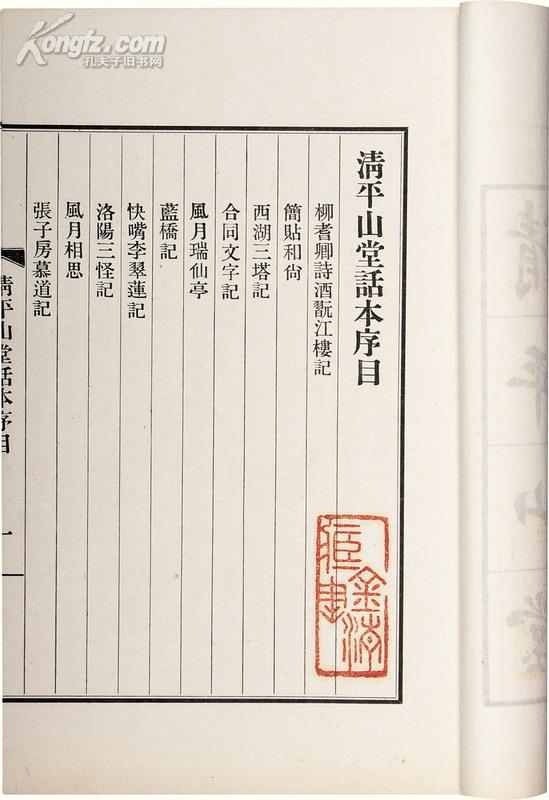 Kongfz.com
孔夫子旧书网
清平山堂話本序目
柳耆卿詩酒翫江樓記
簡貼和尙
西湖三塔記
合同文字記
風月瑞仙亭
藍橋記
快嘴李翠蓮記
洛陽三怪記
風月相思
張子房慕道記
清平山堂話本序目
一